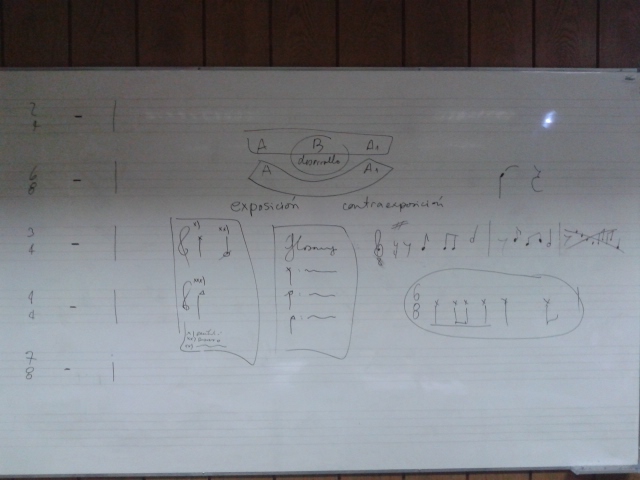 2
4 -
6
8 -
3
4 -
4
4 -
7
8 -
A B A1
desarrollo
A A1
exposición contraexposición
Glosary
6
8